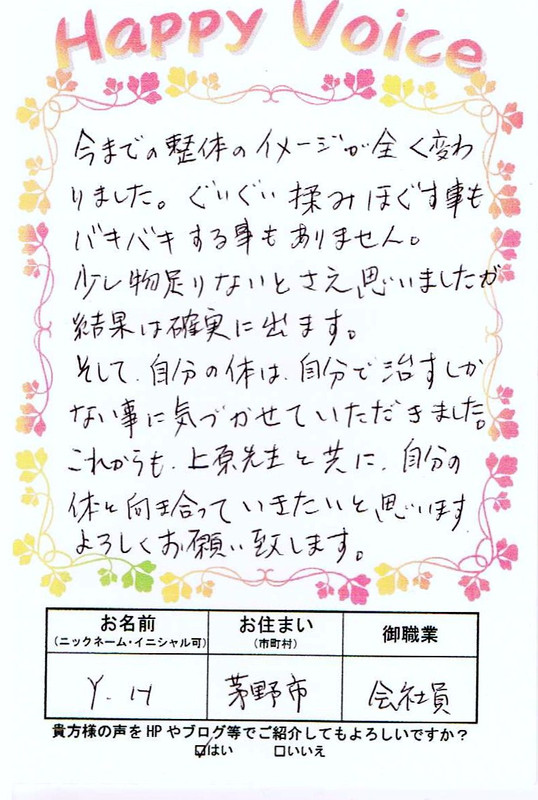 Happy Voice
今までの整体のイメージが全く変わ
りました。ぐいぐい揉みほぐす事も
バキバキする事もありません。
少し物足りないとさえ思いましたが
結果は確実に出ます。
そして、自分の体は、自分で治すしか
ない事に気づかせていただきました。
これからも、上原先生と共に、自分の
体と向き合っていきたいと思います
よろしくお願い致します。
お名前 お住まい 御職業
(ニックネーム・イニシャル可) (市町村)
Y.H 茅野市 会社員
貴方様の声をHPやブログ等でご紹介してもよろしいですか？
☑はい □いいえ